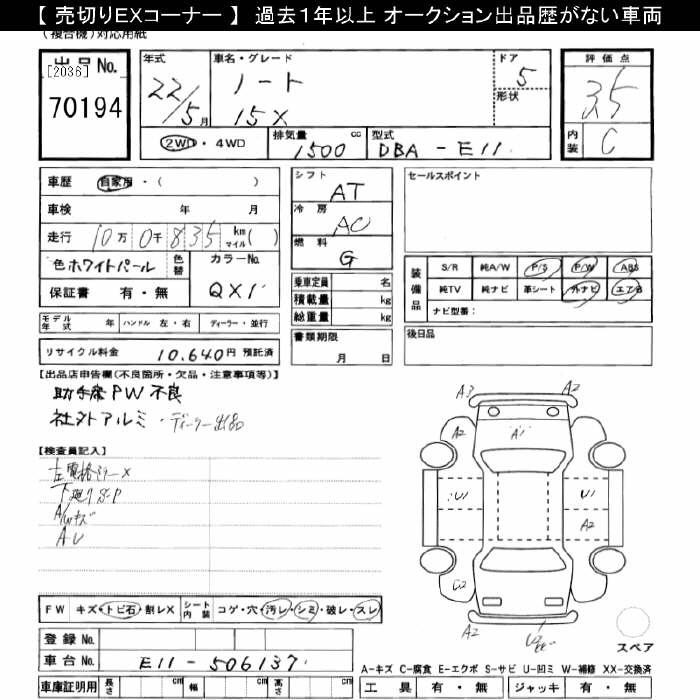 【 売切りEXコーナー 】 過去1年以上 オークション出品歴がない車両
(複合機)対応用紙
出品 No.
[2036]
70194
年式 22/5 月
車名・グレード
ノート
15X
ドア 5
形状
評価点
3.5
内装 C
2WD・4WD
排気量 1500 cc
型式 DBA-E11
車歴 自家用・( )
車検 年 月
走行 10万0千835 km マイル( )
色 ホワイトパール 色替
カラーNo. QX1
保証書 有・無
モデル年式 年 ハンドル 左・右 ディーラー・並行
リサイクル料金 10,640円 預託済
シフト AT
冷房 AC
燃料 G
乗車定員 名
積載量 kg
総重量 kg
書類期限
月 日
セールスポイント
装備品
S/R 純A/W P/S P/W ABS
純TV 純ナビ 革シート 外ナビ エアB
ナビ型番:
後日品
【出品店申告欄(不良箇所・欠品・注意事項等)】
助手席PW不良
社外アルミ・ディーラー出品
【検査員記入】
左電格ミラーX
下廻りS・P
A/Wキズ
A・U
A3
A2
A2
A1
U1
U1
A2
C2
A2
スペア
FW キズ・トビ石・割レX シート内装 コゲ・穴・汚レ・シミ・破レ・スレ
登録 No.
車台 No. E11-506137
車庫証明用 長さ cm 幅 cm 高さ cm
A-キズ C-腐食 E-エクボ S-サビ U-凹ミ W-補修 XX-交換済
工具 有・無 ジャッキ 有・無